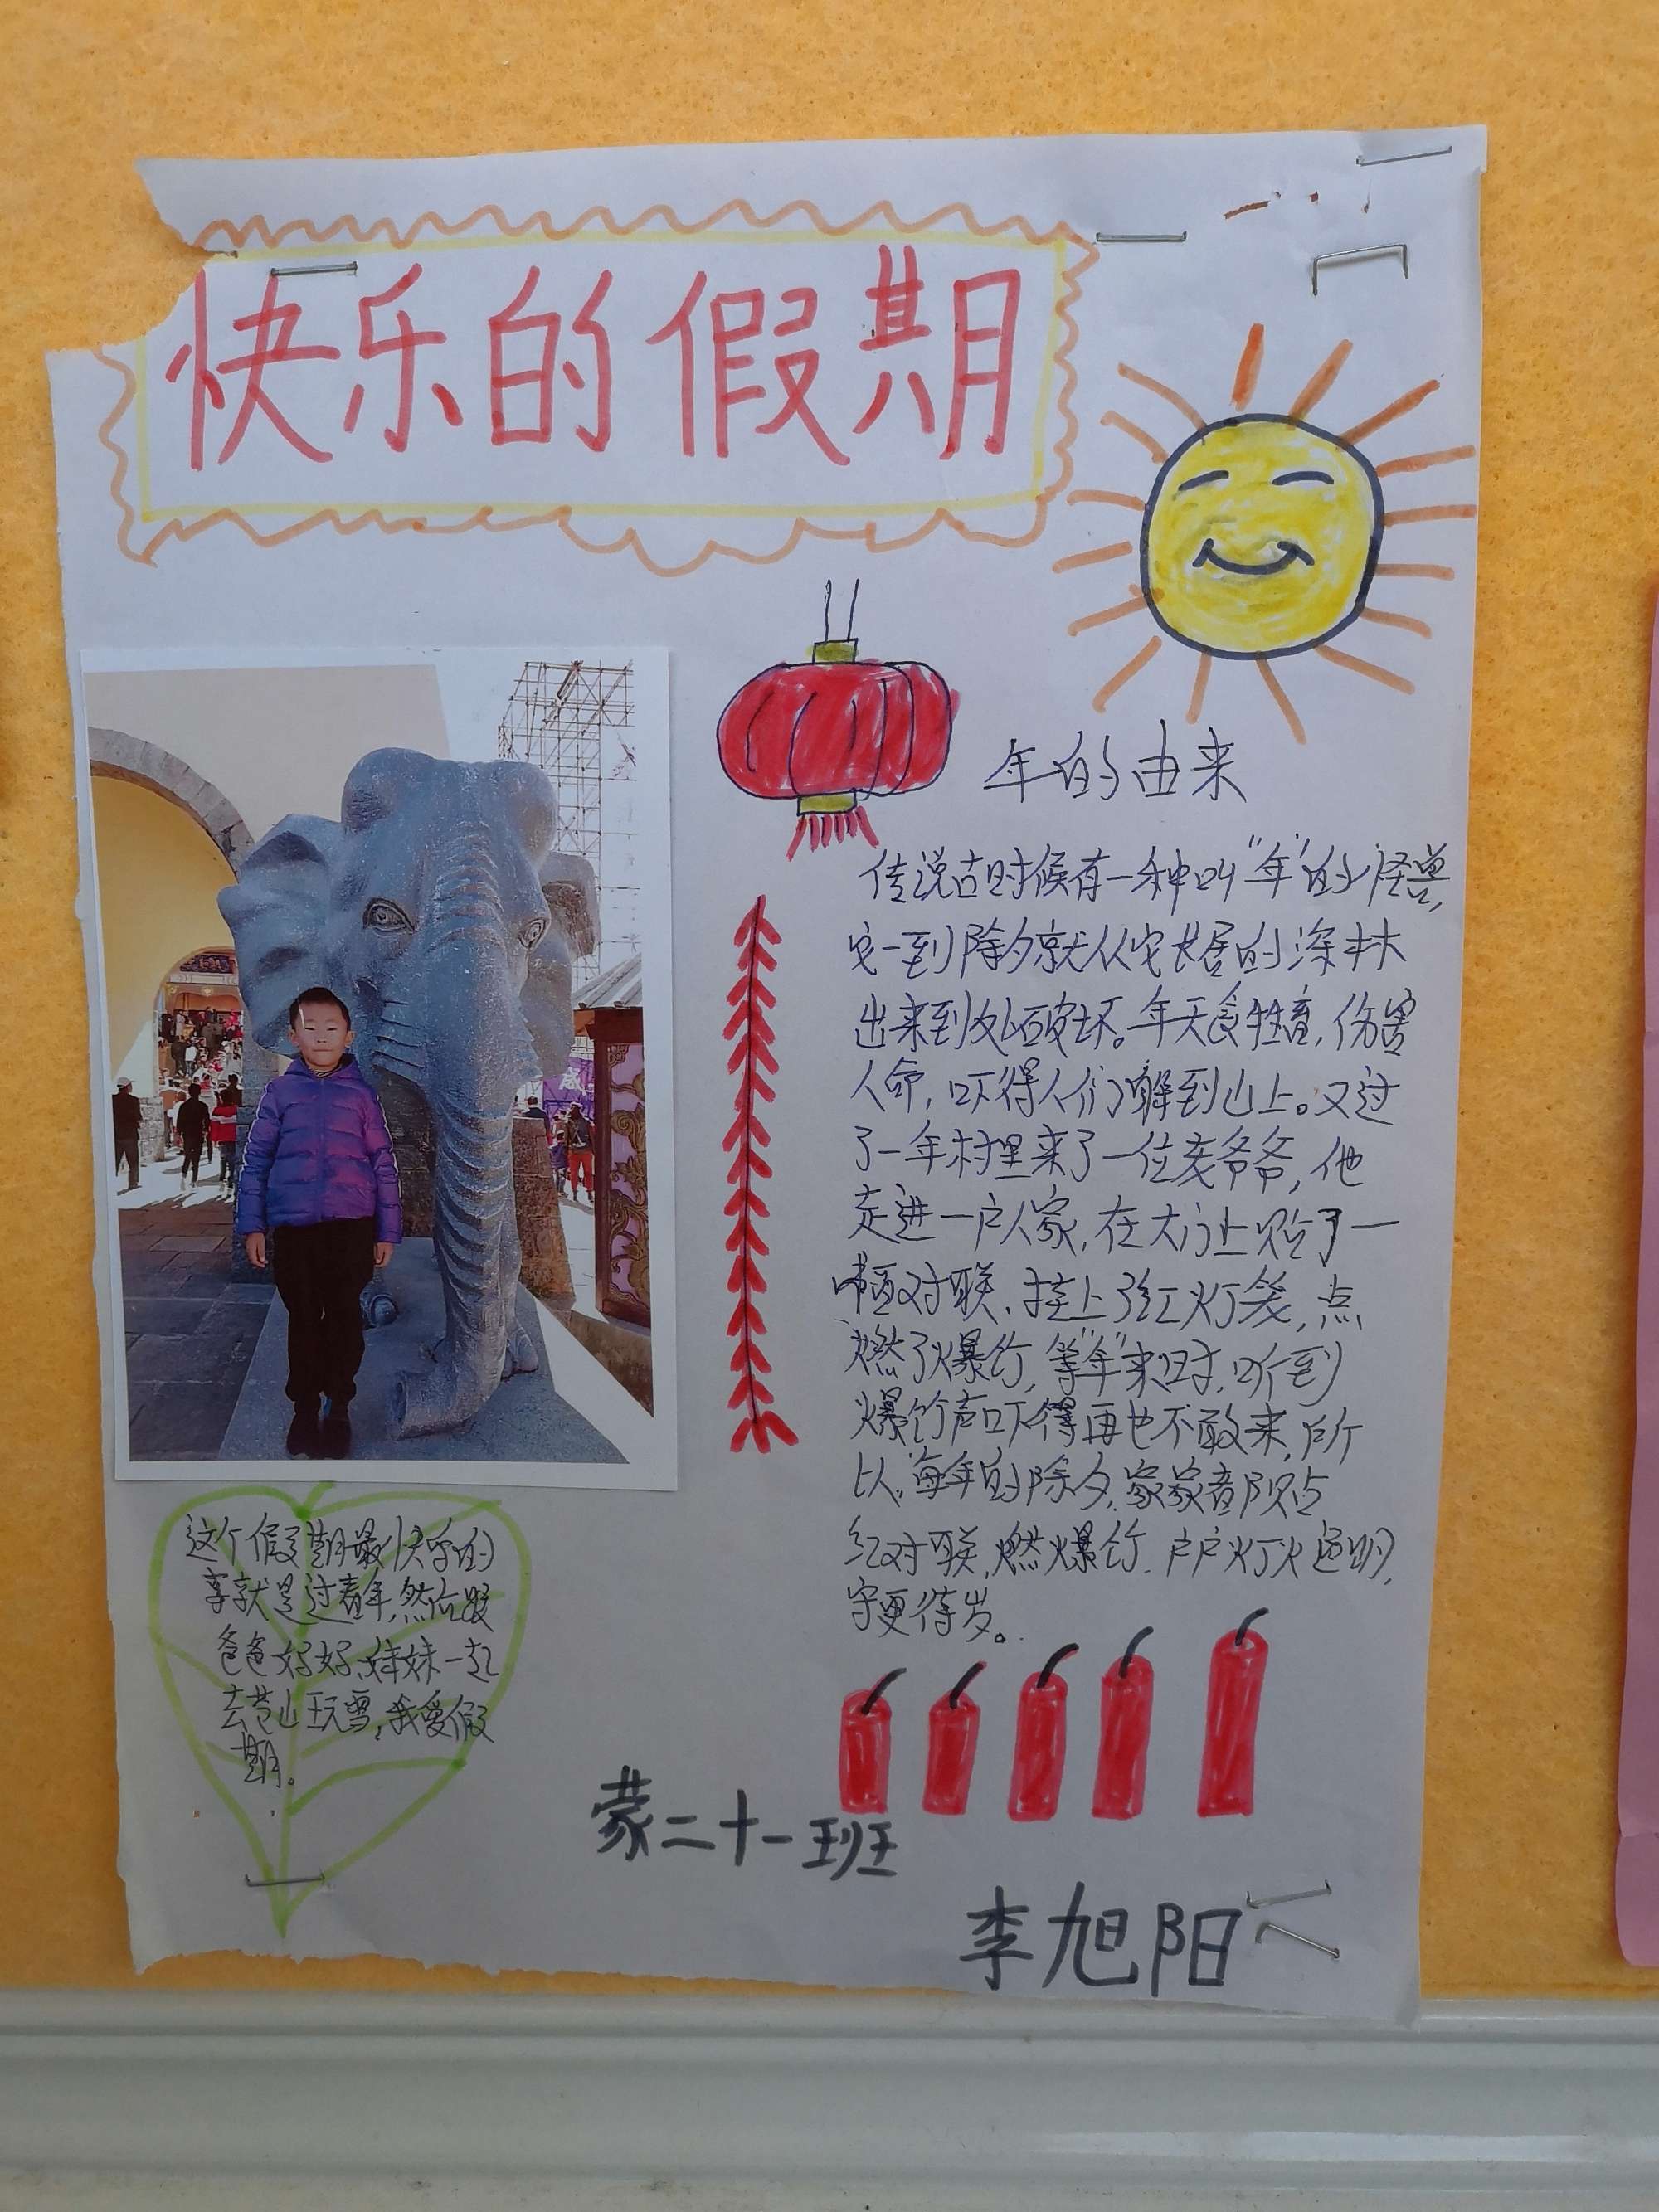 快乐的假期
年的由来
传说古时候有一种叫"年"的怪兽,
它一到除夕就从它长居的深林
出来到处破坏。年天食牲畜,伤害
人命,吓得人们躲到山上。又过
了一年村里来了一位老爷爷,他
走进一户人家,在大门上贴了一
幅对联、挂上了红灯笼,点
燃了爆竹,等"年"来时,听到
爆竹声吓得再也不敢来,所
以,每年的除夕,家家都贴
红对联,燃爆竹.户户灯火通明,
守更待岁。
这个假期最快乐的
事就是过春年,然后跟
爸爸妈妈、妹妹一起
去苍山玩雪,我爱假
期。
蒙二十一班
李旭阳